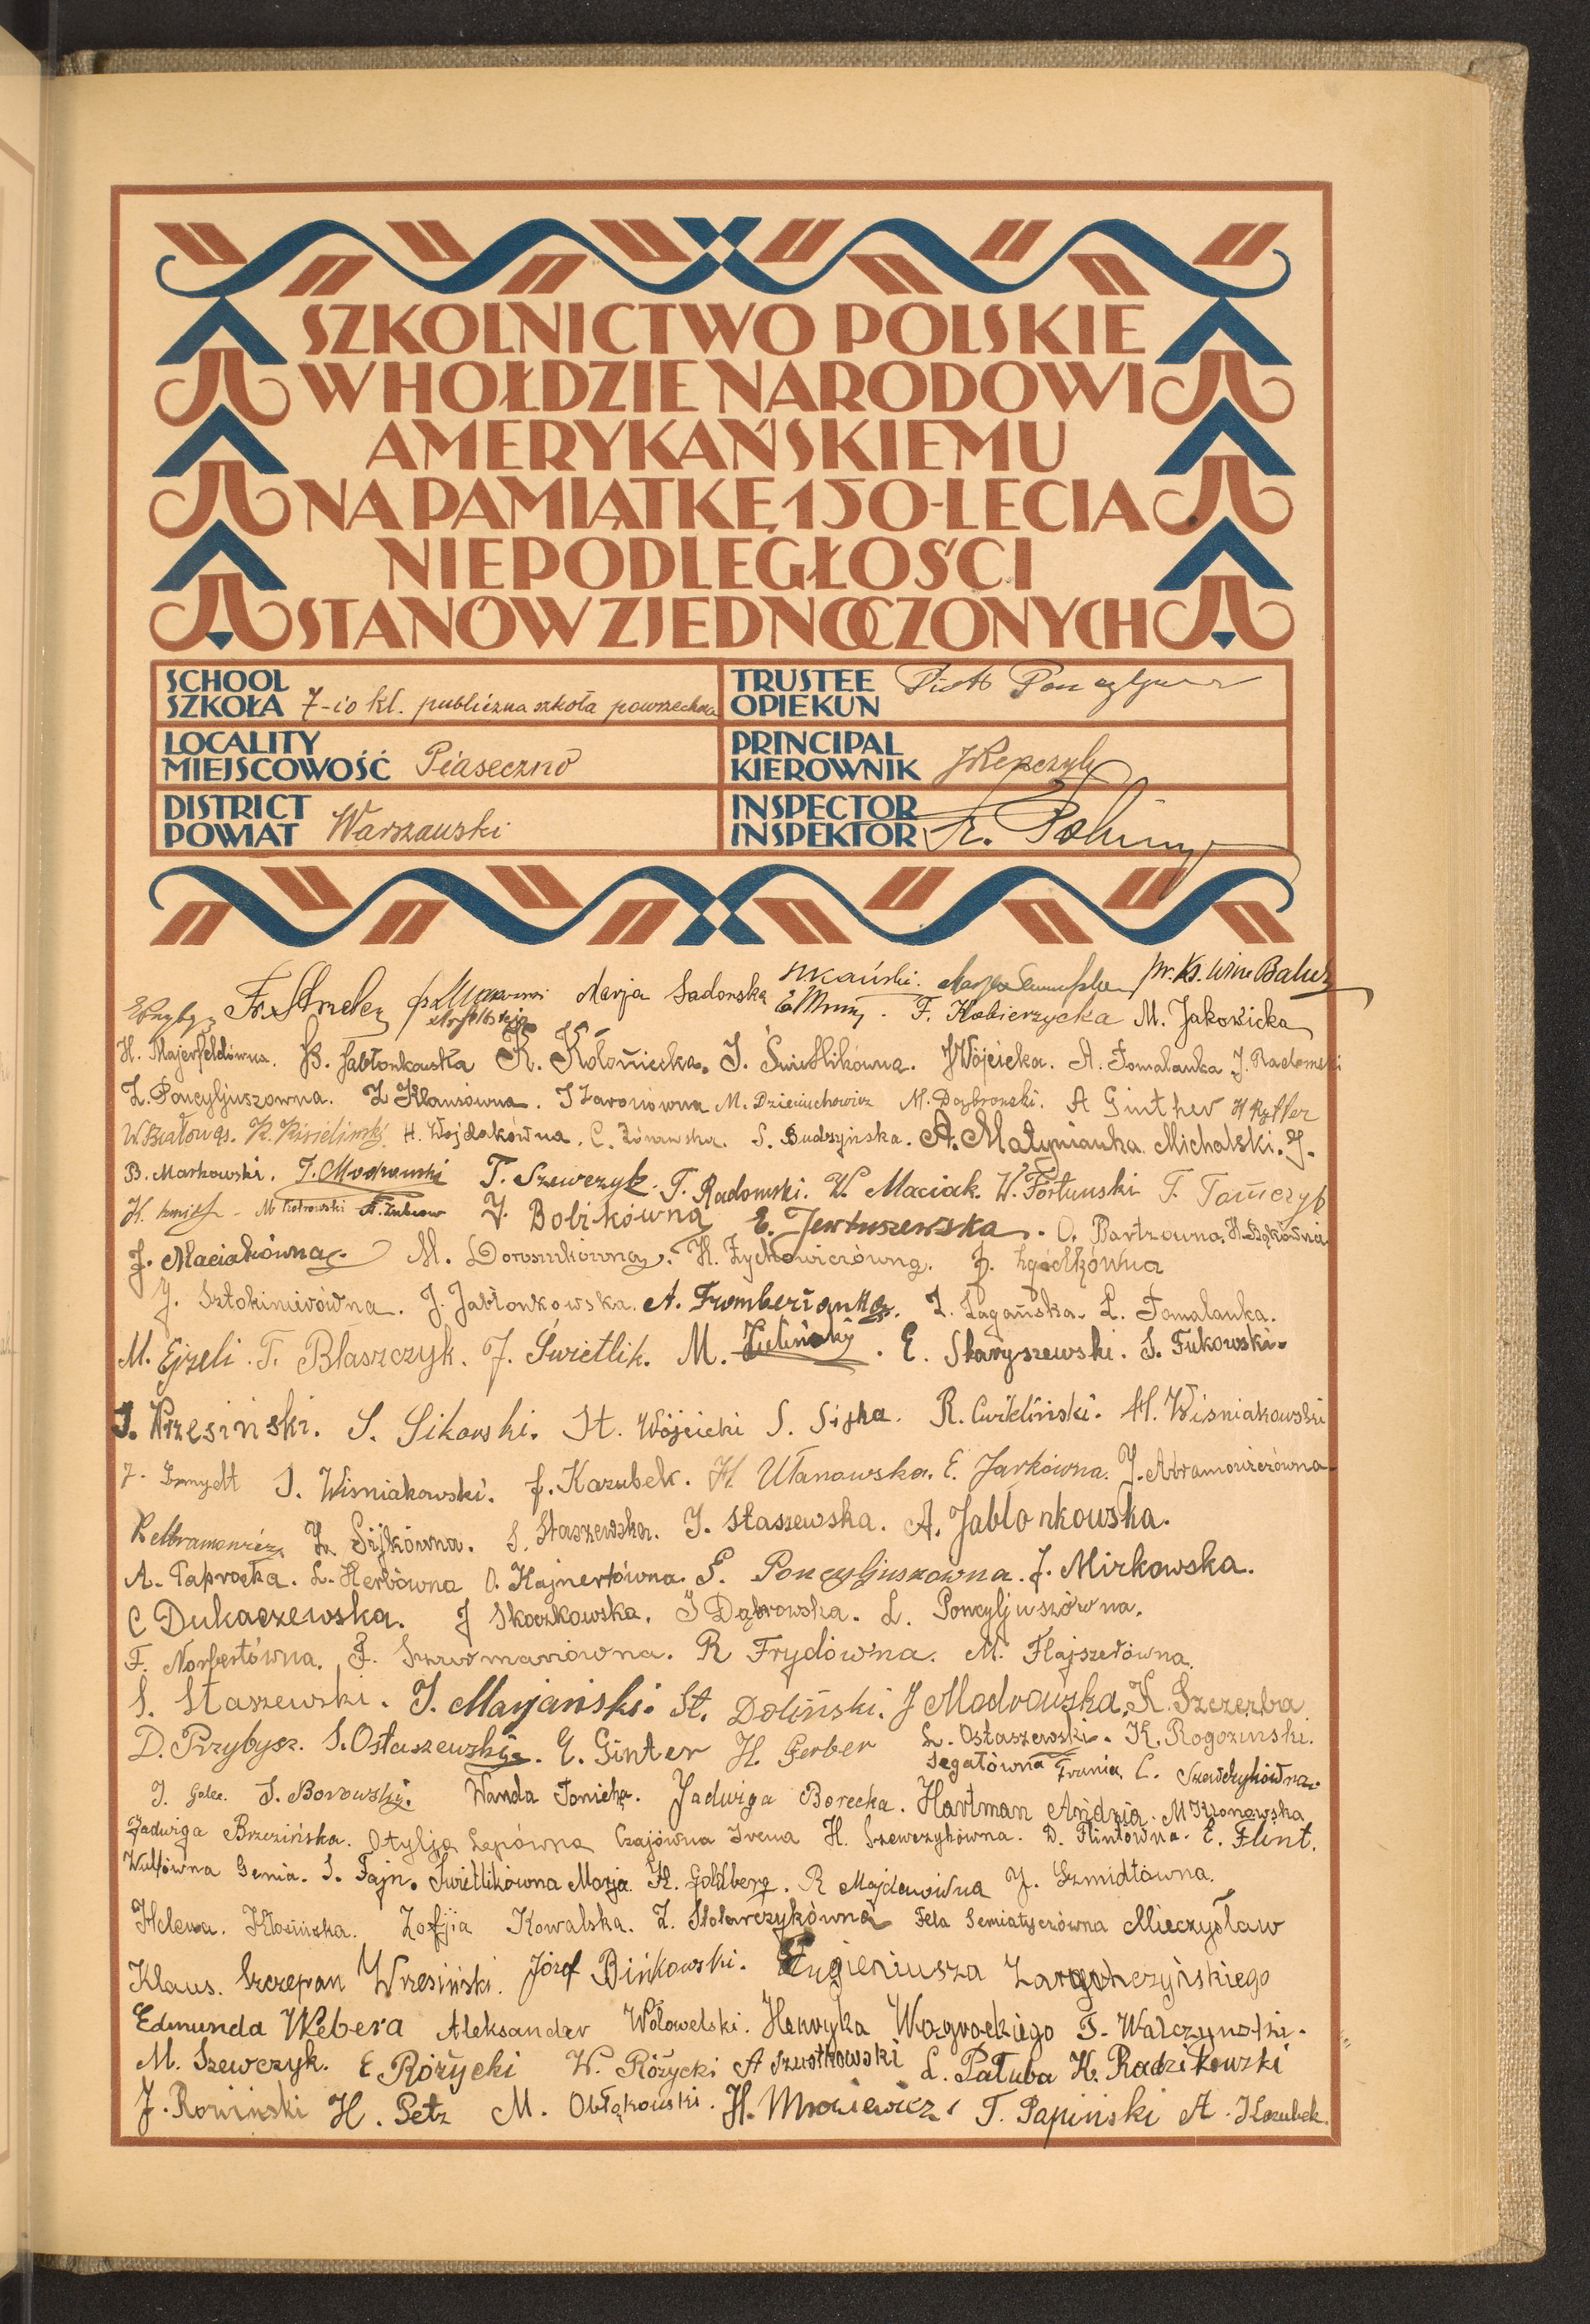 SZKOLNICTWO POLSKIE
W HOŁDZIE NARODOWI
AMERYKAŃSKIEMU
NA PAMIĄTKĘ 150-LECIA
NIEPODLEGŁOŚCI
STANÓW ZJEDNOCZONYCH
SCHOOL
SZKOŁA 7-io kl. publiczna szkoła powszechna
TRUSTEE
OPIEKUN Piotr
LOCALITY
MIEJSCOWOŚĆ Piaseczno
PRINCIPAL
KIEROWNIK
DISTRICT
POWIAT Warszawski
INSPECTOR
INSPEKTOR
Marja Sadowska
F. Kobierzycka M. Jakowicka
H. Majerfeldówna. B. Jabłonkowska K. Kołoniecka. J. Świetlikówna. J Wójcicka. A. Tomalanka J. Radomski
Z. Poncyljuszowna. Z Klausówna. M. Dzieniuchowicz M. Dąbrowski. A Ginther H Rytter
H. Wojdakówna. S. Budzyńska. A. Małynianka Michalski. J.
B. Markowski. T. Szewczyk. T. Radomski. W. Maciak. W. Fortuński T. Tomczyk
M Piotrowski J. Bobikówna E. Jewtuszewska. O. Bartzowna. H. Bąkówna
J. Maciakówna. M. Doroszukówna. H. Zychowiczówna. J. Zgódkówna
J. Sztokimirówna. J. Jabłonkowska. A. Fromberżanka. Z. Łagańska. L. Tomalanka.
M. Ejzeli. T. Błaszczyk. J. Świetlik. M. Zieliński. E. Staryszewski. S. Fukowski.
J. Wrzesiński. S. Sikorski. St. Wójcicki S. Sijka. R. Ćwikliński. H. Wiśniakowski
J. Szmydt J. Wiśniakowski. J. Kazubek. H Ułanowska. E. Jarkówna. J. Abramowiczówna
R Abramowicz. Z. Sijkówna. S. Staszewska. J. Staszewska. A. Jabłonkowska.
A. Paprocka. L. Herbówna O. Hajnertówna. G. Poncyljuszówna. J. Mirkowska.
C Dukaczewska. J Skoczkowska. J Dąbrowska. L. Poncyljuszówna.
F. Norbertówna. F. Szurmanówna. R Frydówna. M. Flajszerówna.
S. Staszewski. J. Marjański. St. Doliński. J Modrowska. K. Szczerba
D. Przybysz. S. Ostaszewski. E. Ginter H. Gerber L. Ostaszewski. K. Rogoziński.
Segałówna Frania. C. Szewczykówna.
J. Galec. S. Borowski. Wanda Tonicha. Jadwiga Borecka. Hartman Andzia.
Jadwiga Brzezińska. Otylja Lepówna Czajówna Irena H. Szewczykówna. D. Flintówna. E. Flint.
Wulfówna Genia. S. Fajn. Świetlikówna Marja. H. Goldberg. R Majdanówna J. Szmidtówna.
Helena. Kłosińska. Zofjia Kowalska. Z. Stolarczykówna Fela Semiatyczówna Mieczysław
Klaus. Szczepan Wrzesiński. Józef Bińkowski. Eugieniusza Zargończyńskiego
Edmunda Webera Aleksander Wołowelski. Henryka Wągrockiego T. Walczyński.
M. Szewczyk. E Różycki W. Różycki A Szustkowski L. Pałuba K. Radzikowski
J. Rowiński H. Petz M. Obłąkowski. H. Mrowiewicz. T. Papiński A. Kazubek.